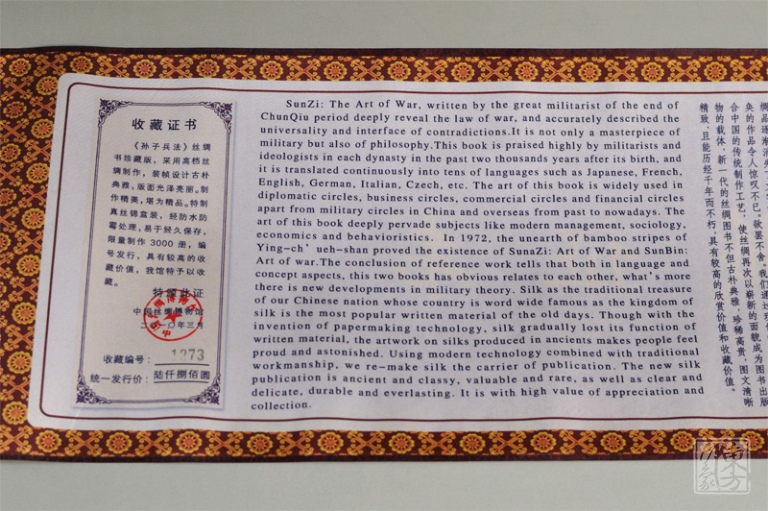 收藏证书
《孙子兵法》丝绸
书珍藏版，采用高档丝
绸制作，装帧设计古朴
典雅，版面光泽亮丽，制
作精美，堪为精品。特制
真丝锦盒装，轻防水防
霉处理，易于轻久保存，
限量制作 3000 册，编
号发行，具有较高的收
藏价值，我馆特予以收
藏。
特颁此证
中国丝绸博物馆
二〇一〇年三月
收藏编号：1273
统一发行价：陆仟捌佰圆
SunZi: The Art of War, written by the great militarist of the end of
ChunQiu period deeply reveal the law of war, and accurately described the
universality and interface of contradictions.It is not only a masterpiece of
military but also of philosophy.This book is praised highly by militarists and
ideologists in each dynasty in the past two thousands years after its birth, and
it is translated continuously into tens of languages such as Japanese, French,
English, German, Italian, Czech, etc. The art of this book is widely used in
diplomatic circles, business circles, commercial circles and financial circles
apart from military circles in China and overseas from past to nowadays. The
art of this book deeply pervade subjects like modern management, sociology,
economics and behavioristics. In 1972, the unearth of bamboo stripes of
Ying-ch' ueh-shan proved the existence of SunaZi: Art of War and SunBin:
Art of war.The conclusion of reference work tells that both in language and
concept aspects, this two books has obvious relates to each other, what's more
there is new developments in military theory. Silk as the traditional treasure
of our Chinese nation whose country is word wide famous as the kingdom of
silk is the most popular written material of the old days. Though with the
invention of papermaking technology, silk gradually lost its function of
written material, the artwork on silks produced in ancients makes people feel
proud and astonished. Using modern technology combined with traditional
workmanship, we re-make silk the carrier of publication. The new silk
publication is ancient and classy, valuable and rare, as well as clear and
delicate, durable and everlasting. It is with high value of appreciation and
collection.
奂的作品令人惊叹不已，欲罢不舍。我们通过现代
合中国的传统制作工艺，使丝绸再次以崭新的面貌成为图书出版
物的载体。新一代的丝绸图书不但古朴典雅、珍稀高贵，图文清晰
精致，且能历经千年而不朽，具有较高的欣赏价值和收藏价值。